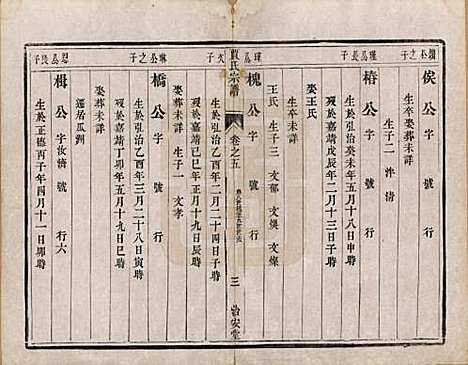 俟公字號行
生卒娶葬未詳
生子二 洋 清
瑾公長子
椿公字號行
生於弘治癸未年五月十九日寅時
歿於嘉靖戊辰年二月十三日子時
娶王氏
生卒未詳
王氏 生子三 文郁 文煥 文燦
次子
槐公字號行
生於弘治乙酉年二月二十四日子時
歿於嘉靖己巳年五月十九日辰時
氏宗譜
卷之五
三
治安堂
公之子
橋公字號行
生於弘治乙亥年三月二十八日寅時
歿於嘉靖丁卯年五月十九日時
娶葬未詳 生子一 文孝
娶葬未詳
公長子
楫公字汝濟號行六
遷居瓜州
生於正德丙子年四月十一日卯時